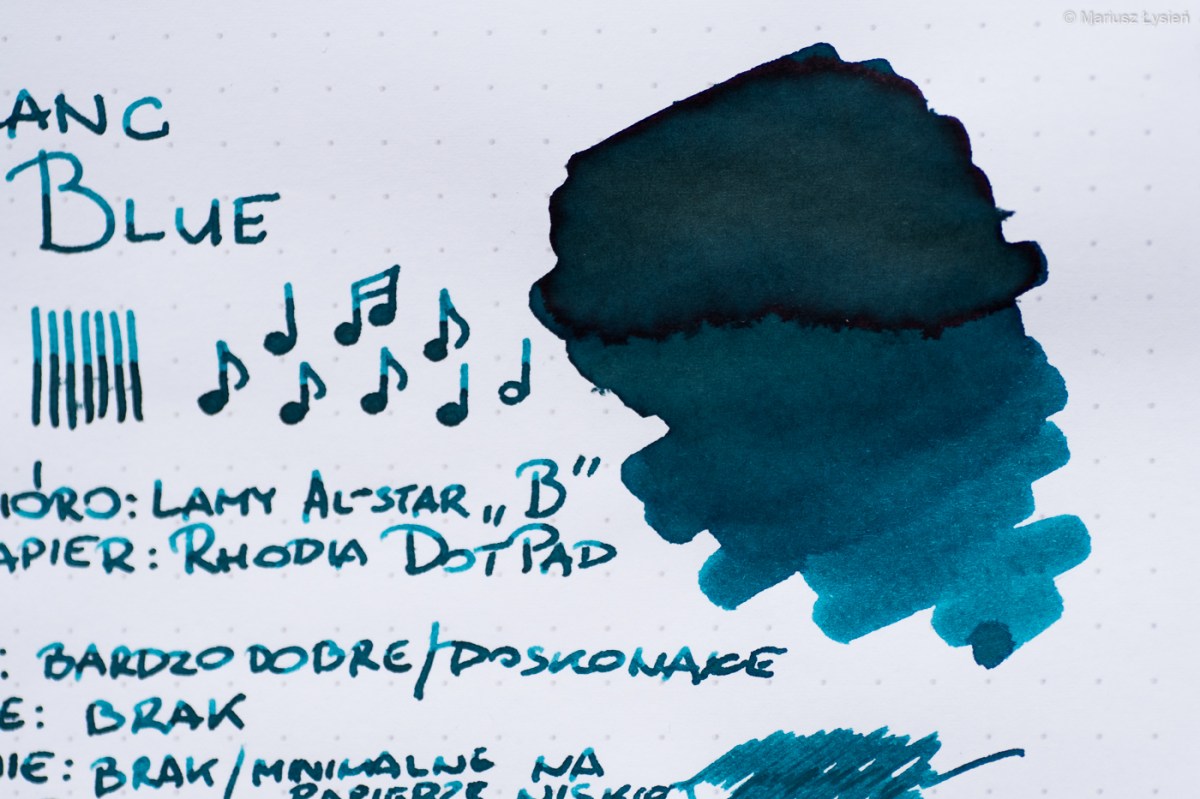 © Mariusz Łysień
ANC
BLUE
IÓRO: LAMY AL-STAR „B”
APIER: RHODIA DOTPAD
: BARDZO DOBRE/DOSKONAŁE
E: BRAK
NIE: BRAK/MINIMALNE NA
PAPIERZE NISKIEJ